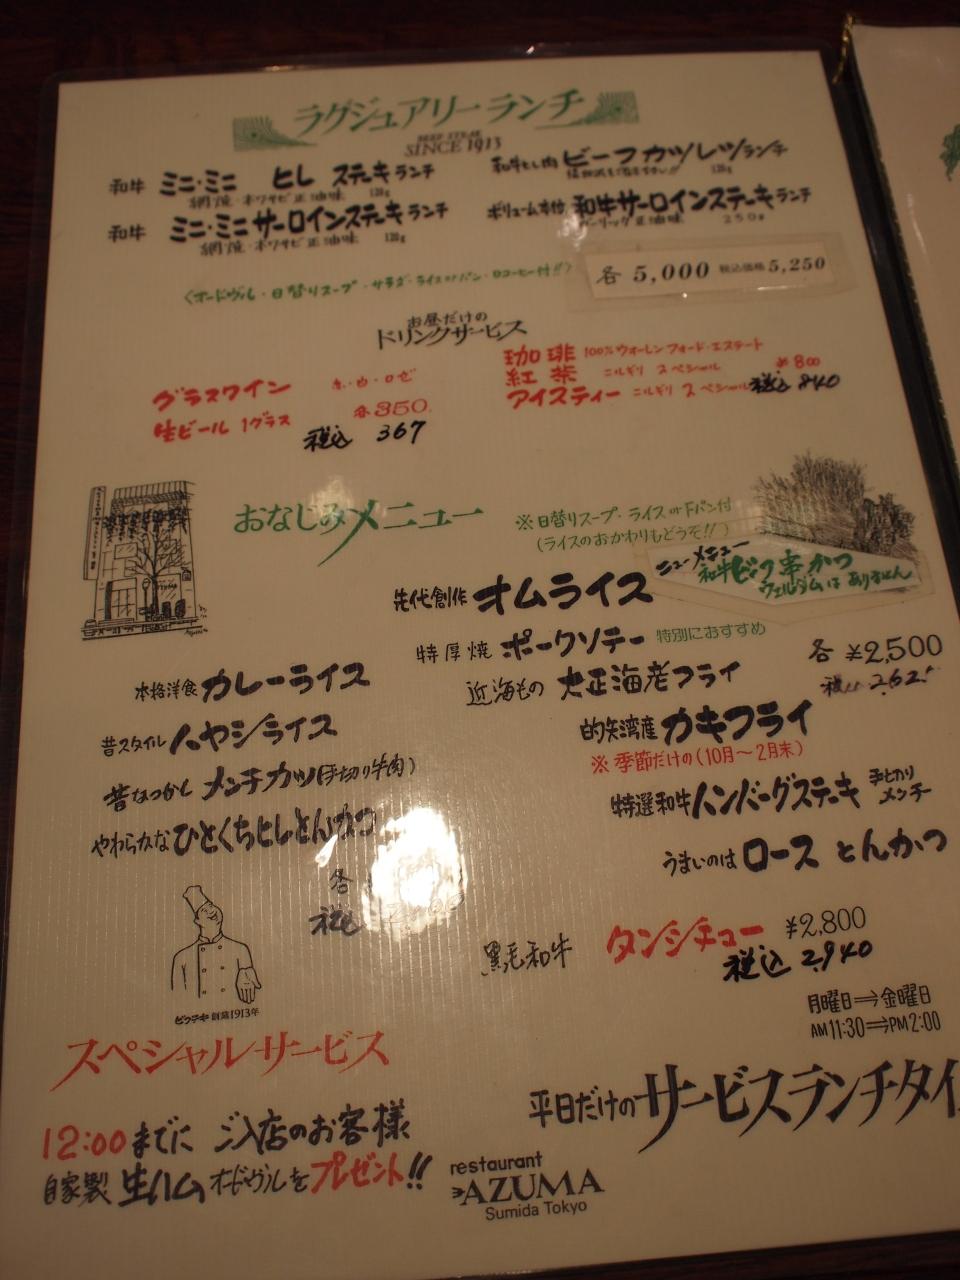 ラグジュアリーランチ
BEEF STEAK
SINCE 1913
和牛 ミニ・ミニ ヒレ ステーキランチ
網焼・本ワサビ正油味 120g
和牛 ミニ・ミニサーロインステーキランチ
網焼・本ワサビ正油味 120g
和牛ヒレ肉 ビーフカツレツランチ
120g
ボリューム本位 和牛サーロインステーキランチ
ガーリック正油味 250g
各 5,000 税込価格 5,250
〈オードヴル・日替りスープ・サラダ・ライスorパン・コーヒー付!!〉
お昼だけの
ドリンクサービス
グラスワイン 赤・白・ロゼ
生ビール 1グラス 各350.
税込 367
珈琲 100%ウォーレンフォード・エステート
紅茶 ニルギリ スペシャル ¥800
アイスティー ニルギリ スペシャル 税込 840
おなじみメニュー
※日替りスープ・ライス or Fパン付
(ライスのおかわりもどうぞ!!)
ニューメニュー
和牛ビック串かつ
ウェルダムはありません
先代創作 オムライス
特厚焼 ポークソテー 特別におすすめ
近海もの 大正海老フライ
各 ¥2,500
的矢湾産 カキフライ
※季節だけの(10月〜2月末)
特選和牛ハンバーグステーキ 手切り
メンチ
うまいのは ロース とんかつ
本格洋食 カレーライス
昔スタイル ハヤシライス
昔なつかし メンチカツ(手切り牛肉)
やわらかな ひとくちヒレとんかつ
各
税込
黒毛和牛 タンシチュー ¥2,800
税込 2,940
月曜日⇒金曜日
AM11:30⇒PM2:00
平日だけのサービスランチタイ
ビフテキ 創業1913年
スペシャルサービス
12:00までに ご入店のお客様
自家製 生ハム オードヴルをプレゼント!!
restaurant
AZUMA
Sumida Tokyo